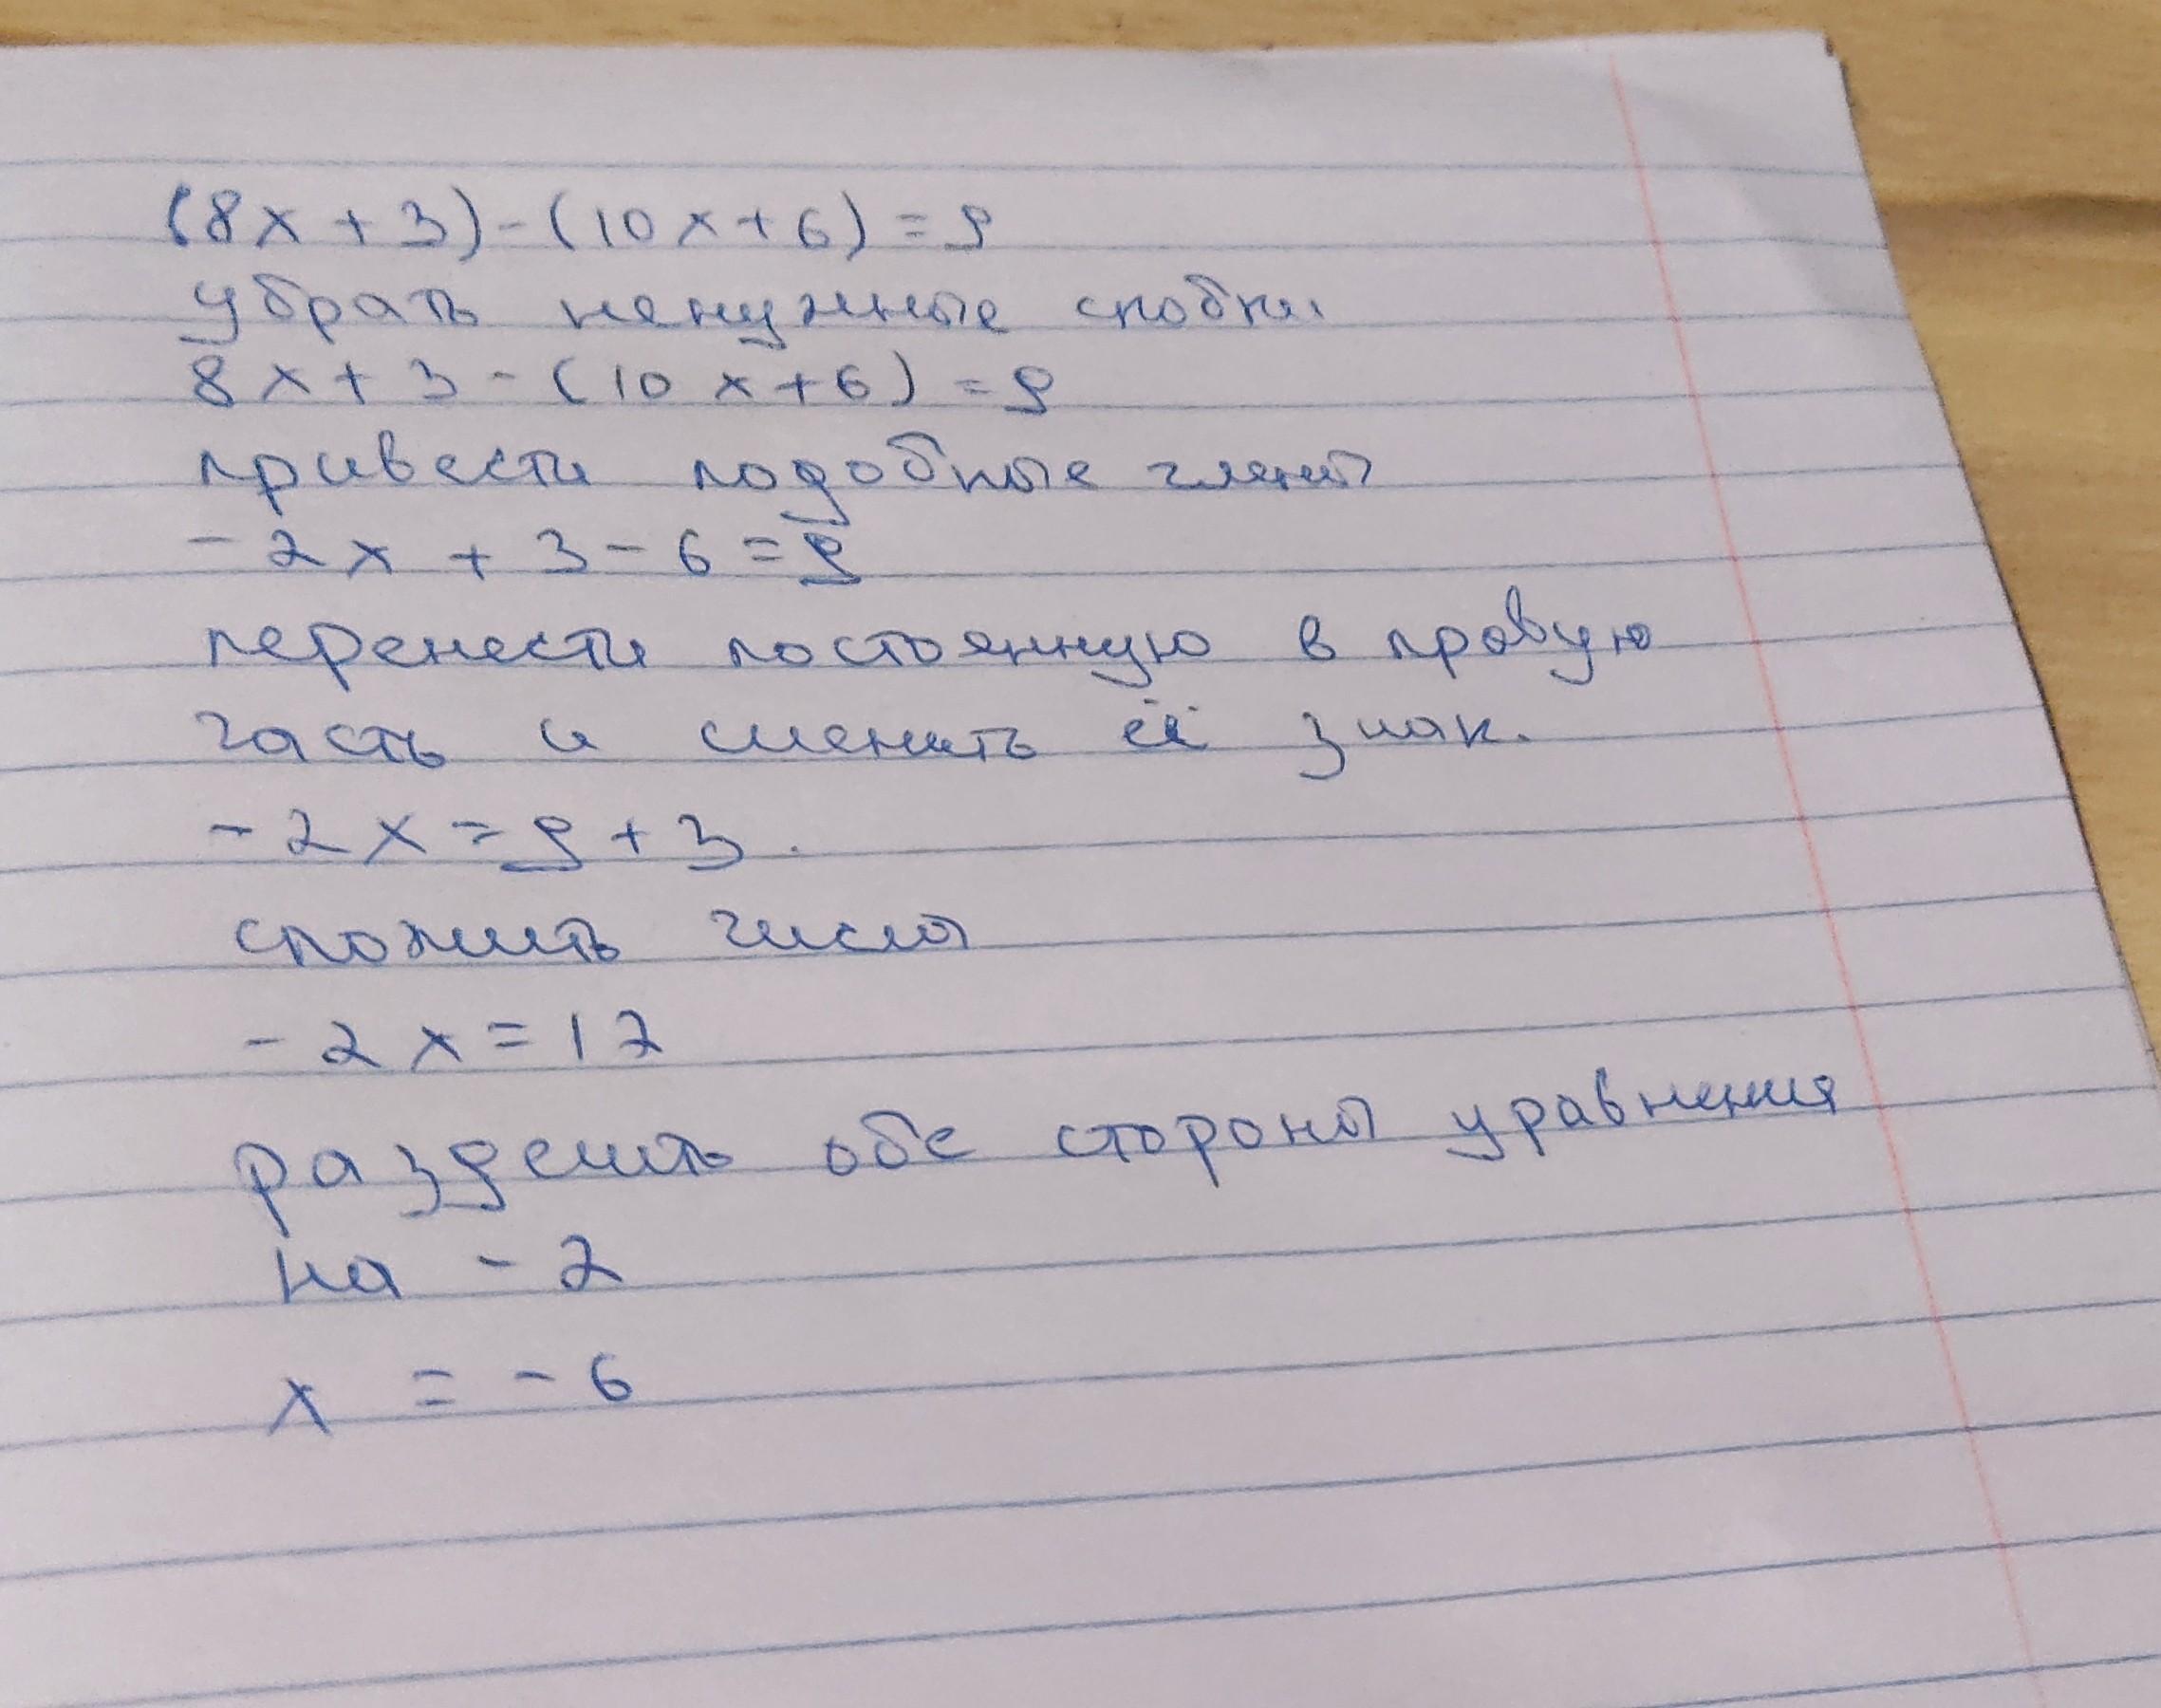 (8x+3)-(10x+6)=9
убрать ненужные скобки
8x+3-(10x+6)=9
привести подобные члены
-2x+3-6=9
перенести постоянную в правую
часть и сменить её знак.
-2x=9+3.
сложить числа
-2x=12
разделить обе стороны уравнения
на -2
x = -6